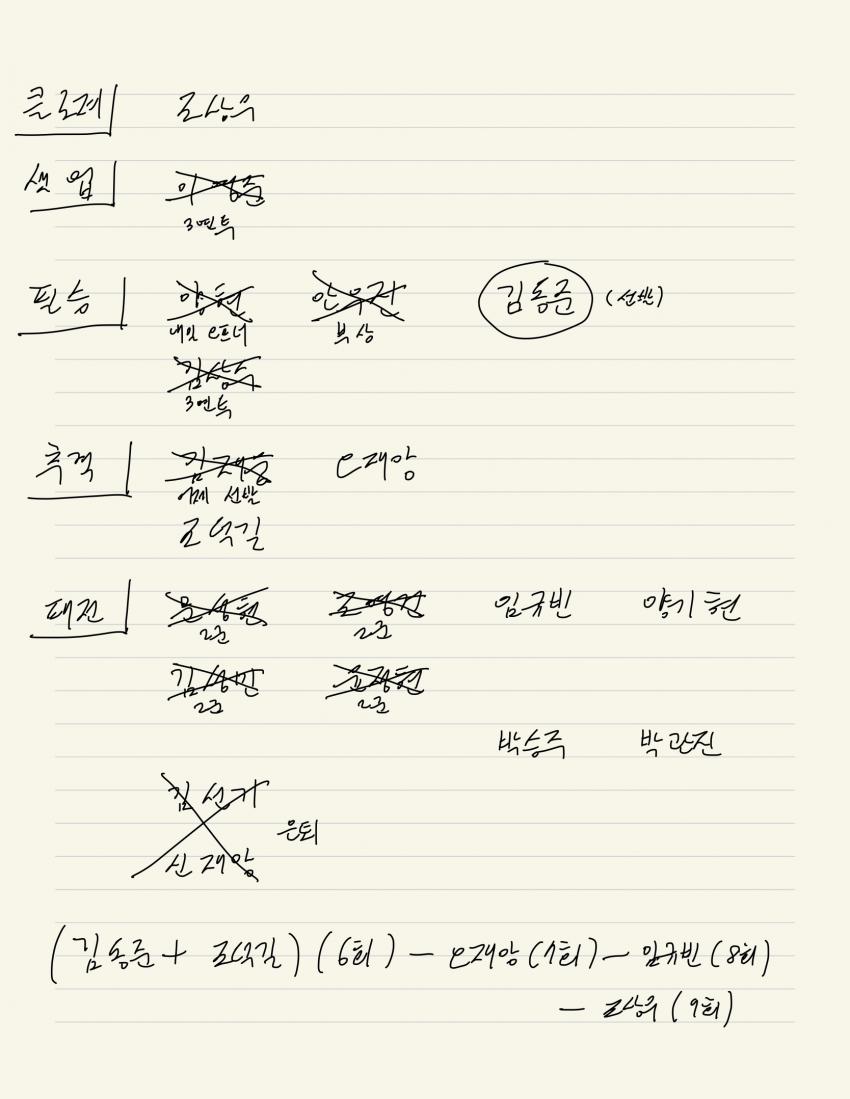 클로저 조상우
셋업 이영준
3연투
필승 양현 안우진 김동준 (선발)
내일 오프너 부상
김상수
3연투
추격 김재웅 오재양
어제 선발
조덕길
패전 윤정현 조영건 임규빈 양기현
2군 2군
김성민 윤정현
2군 2군
박승주 박관진
김선기
은퇴
신재영
(김동준 + 조덕길) (6회) - 오재양 (7회) - 임규빈 (8회)
- 조상우 (9회)